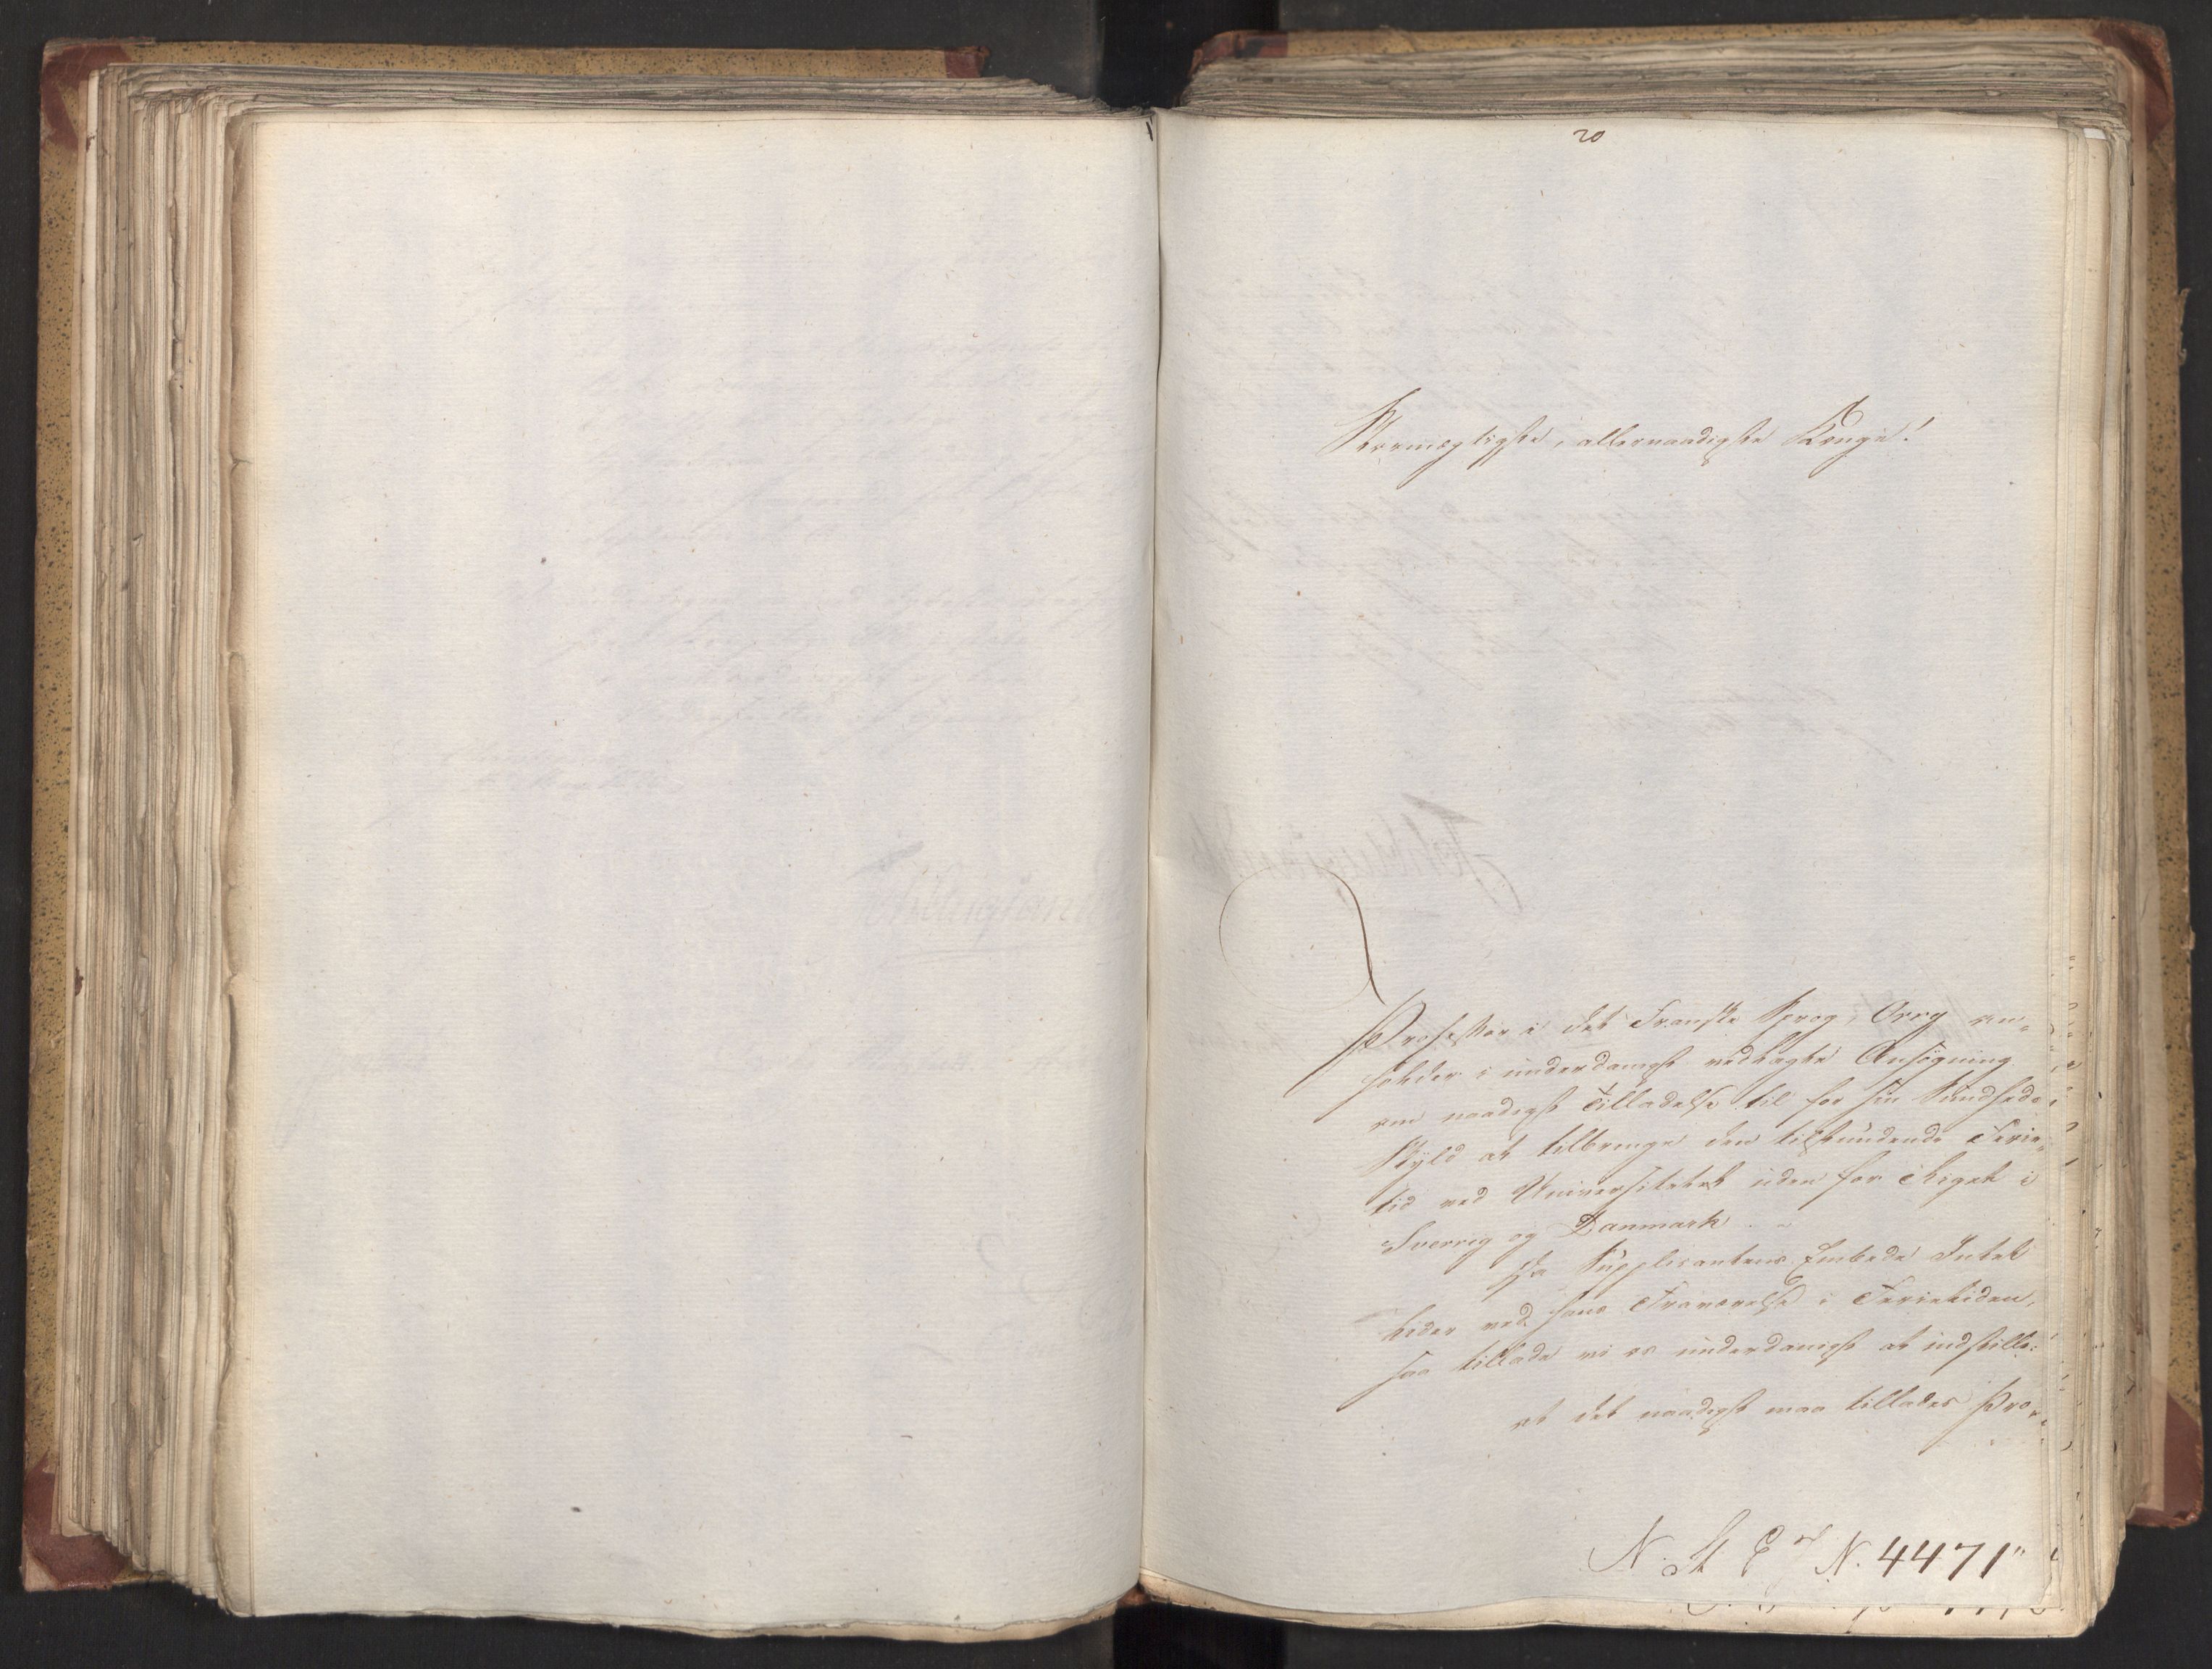 20
Stormægtigste, allernaadigste Konge!
Professor i det Franske Sprog, Orry an-
holder i underdanigst vedlagte Ansøgning
om naadigst Tilladelse til for sin Sundheds
Skyld at tilbringe den tilstundende Ferie-
tid ved Universitetet uden for Riget i
Sverrig og Danmark.
Da Supplicantens Embede Intet
lider ved hans Fraværelse i Ferietiden,
saa tillade vi os underdanigst at indstille:
at det naadigst maa tillades Pro-
N. St. E. N. 4471"